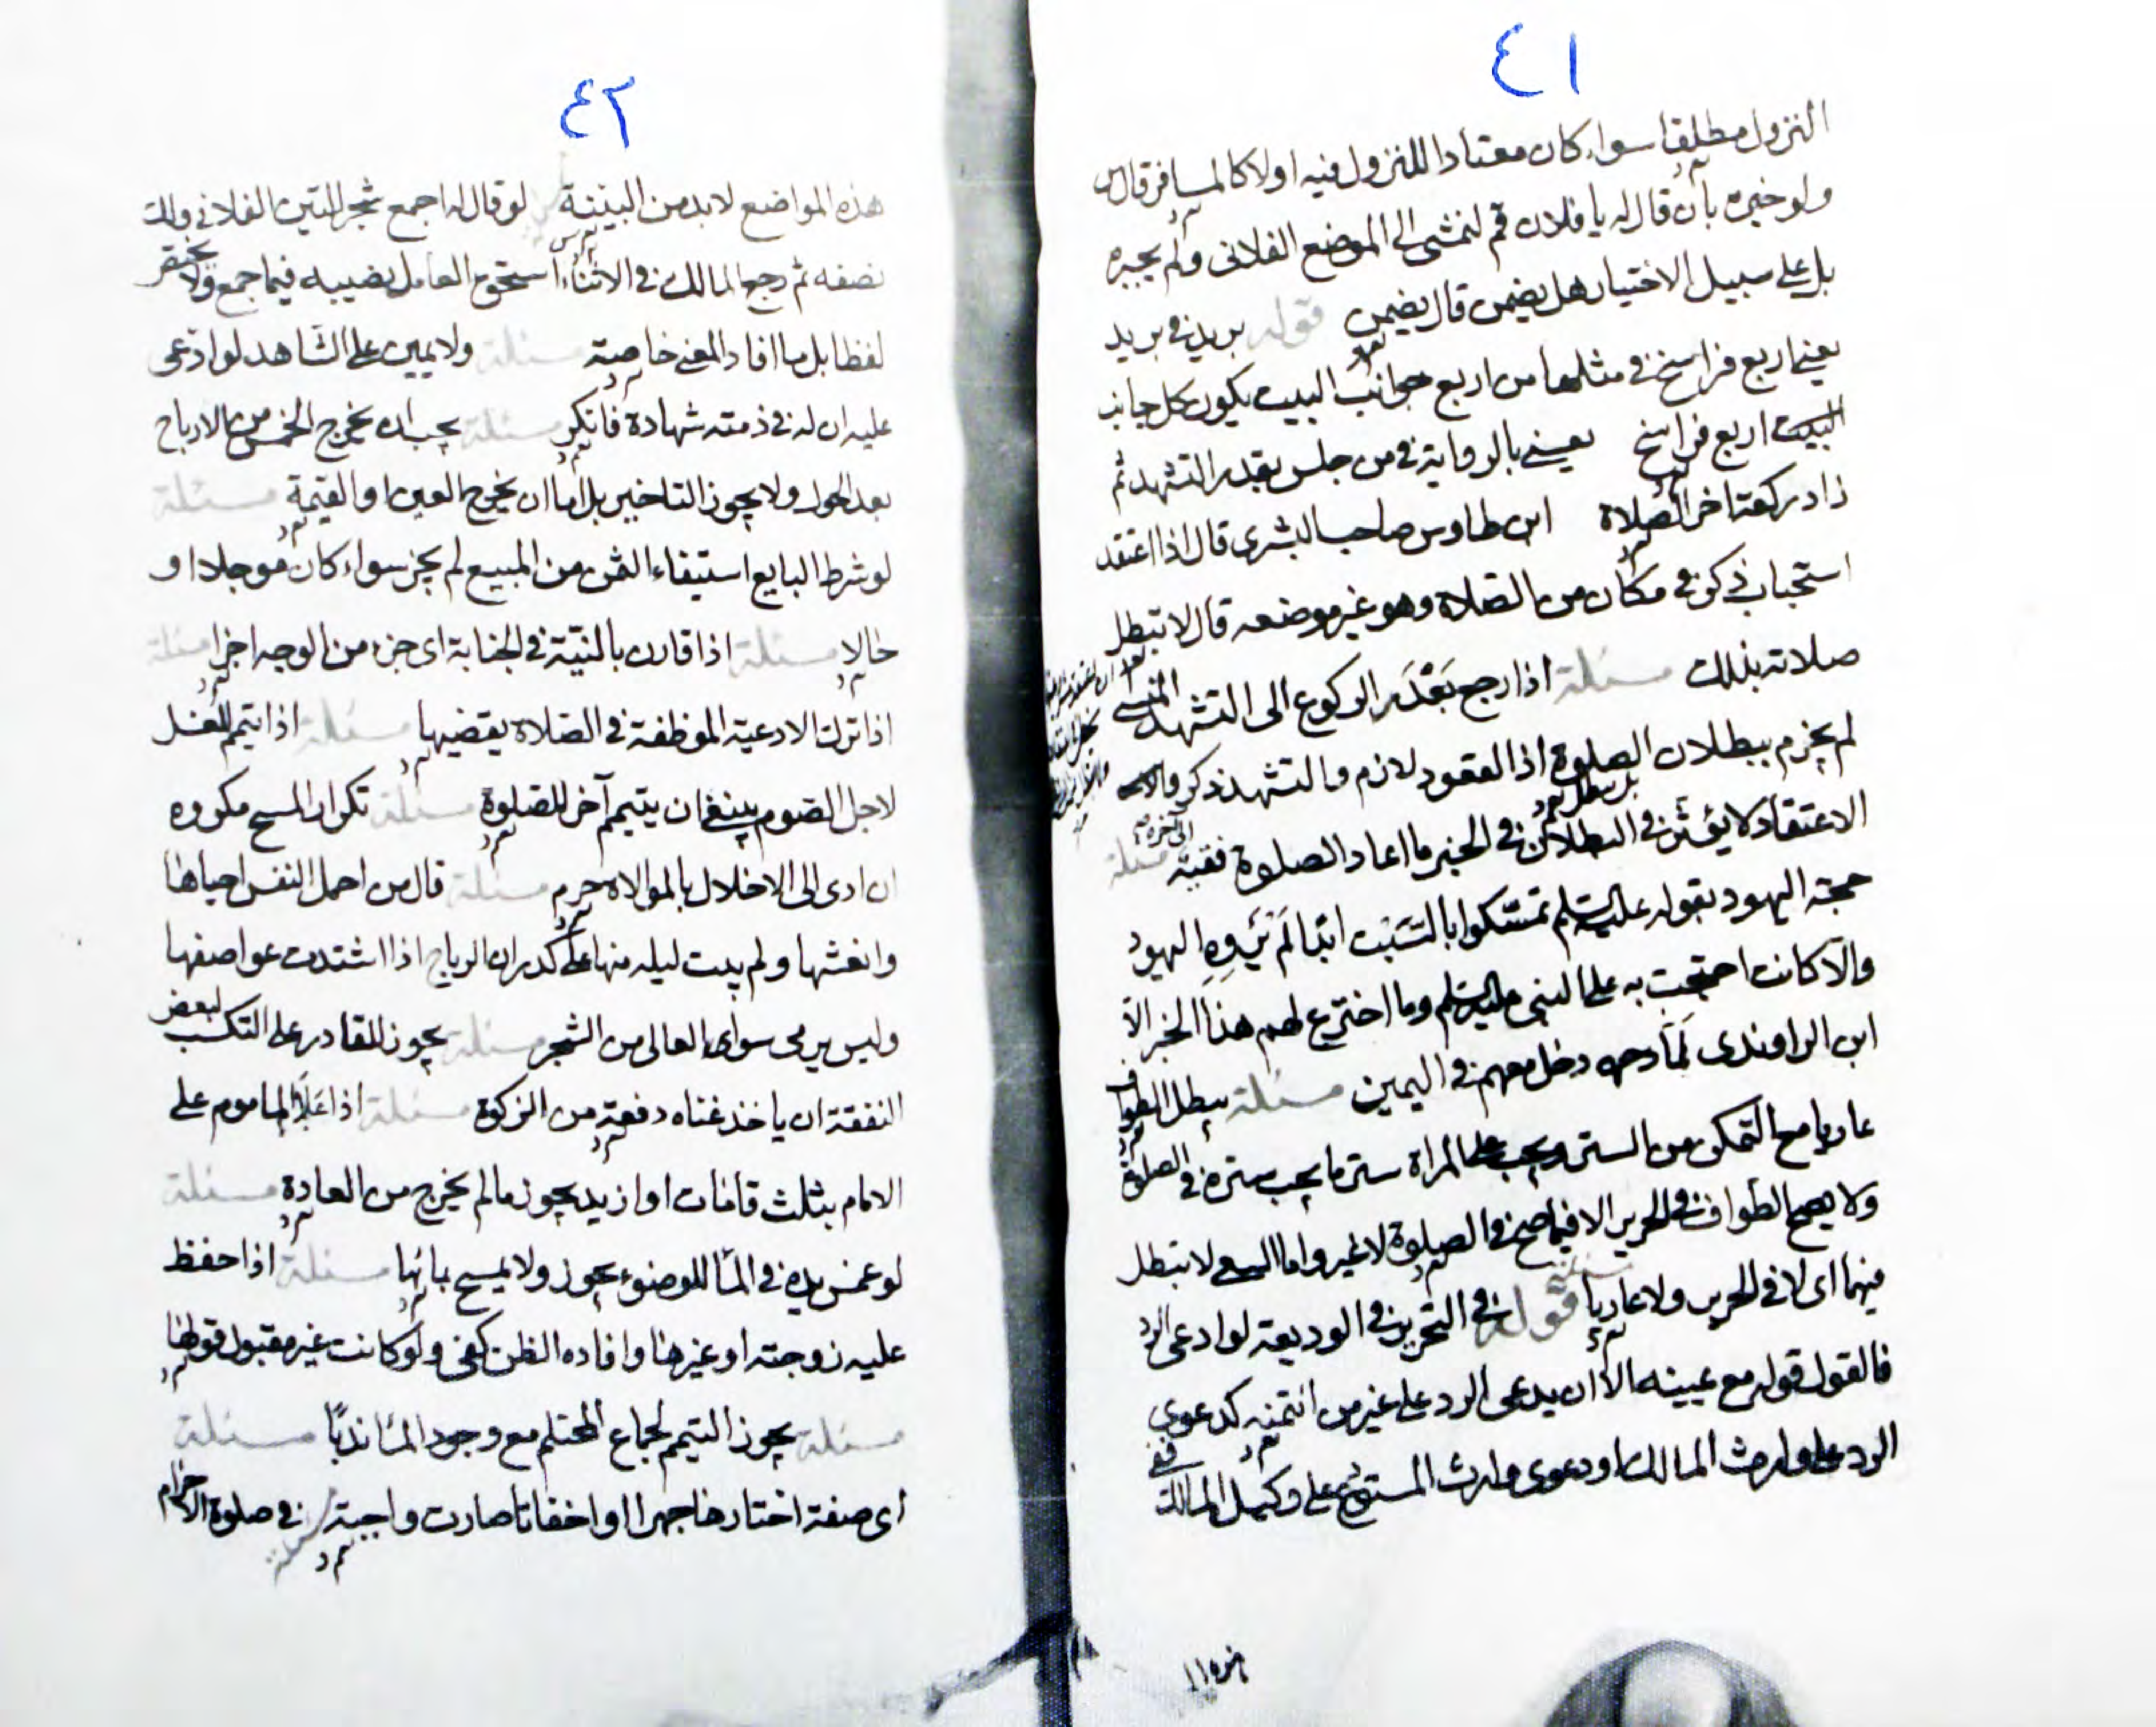 ٤١
النزول مطلقا سواء كان معتادا للنزول فيه اولا كالمسافر قال س
ولو خيره بان قال له يا فلان قم لنمشى الى الموضع الفلانى ولم يجبره
بل على سبيل الاختيار هل يضمن قال يضمن قوله بريد فى بريد
يعنى اربع فراسخ فى مثلها من اربع جوانب البيت يكون كل جانب
البيت اربع فراسخ يعنى بالرواية فى من جلس بقدر التشهد ثم
زاد ركعة اخر الصلاة ابن طاوس صاحب البشرى قال اذا اعتقد
استحباب ذكر فى مكان من الصلاة وهو غير موضعه قال لا تبطل
صلاته بذلك مسئلة اذا رجع بعد الركوع الى التشهد المنسى
لم يجزم ببطلان الصلوة اذ القعود لازم والتشهد ذكر و
الاعتقاد لا يؤثر فى البطلان فى الخبر ما اعاد الصلوة فقيه الى آخره مسئلة
حجة اليهود بقوله عليه السلم تمسكوا بالسبت ابدا لم تروه اليهود
والا كانت احتجت به على النبى عليه السلم وما اخترع لهم هذا الخبر الا
ابن الراوندى لما دخل معهم فى اليمين مسئلة يبطل الطواف
عاريا مع التمكن من الستر ويجب على المراة ستر ما يجب ستره فى الصلوة
ولا يصح الطواف فى الحرير الا فيما صح فى الصلوة لا غير واما السعى لا تبطل
فيهما اى لا فى الحرير ولا عاريا قوله فى التحرير فى الوديعة لو ادعى الرد
فالقول قوله مع يمينه الا ان يدعى الرد على غير من ائتمنه كدعوى
الرد على وارث المالك او دعوى وارث المستودع على وكيل المالك ففى
٤٢
هذه المواضع لا بد من البينة لو قال له اجمع ثمر التين الفلانى ولك
نصفه ثم رجع المالك فى الاثناء استحق العامل نصيبه فيما جمع ولا يفتقر
لفظا بل ما افاد المعنى خاصة مسئلة ولا يمين على الشاهد لو ادعى
عليه ان له فى ذمته شهادة فانكر مسئلة يجب ان يخرج الخمس من الارباح
بعد الحول ولا يجوز التاخير بل اما ان يخرج العين او القيمة مسئلة
لو شرط البايع استيفاء الثمن من المبيع لم يجز سواء كان موجلا او
حالا مسئلة اذا قارن بالنية فى الجنابة اى جزء من الوجه اجزا مسئلة
اذا ترك الادعية الموظفة فى الصلاة يقضيها مسئلة اذا تيمم للغسل
لاجل الصوم ينبغى ان يتيمم آخر للصلوة مسئلة تكرار المسح مكروه
ان ادى الى الاخلال بالموالاة حرم مسئلة قال س احمل النفس احياها
وانعشها ولم يبت ليله منها على كدر ان الرياح اذا اشتدت عواصفها
وليس يرمى سوى العالى من الشجر مسئلة يجوز للقادر على التكسب لبعض
النفقة ان ياخذ غناه دفعة من الزكوة مسئلة اذا علا الماموم على
الامام بثلث قامات او ازيد يجوز ما لم يخرج من العادة مسئلة
لو غمس يده فى الما للوضوء يجوز ولا يمسح بمائها مسئلة اذا حفظ
عليه زوجته او غيرها وافاده الظن كفى ولو كانت غير مقبول قولها
مسئلة يجوز التيمم لجماع المحتلم مع وجود الما ندبا مسئلة
اى صفة اختارها جهرا او اخفاتا صارت واجبة فى صلوة الاحرام